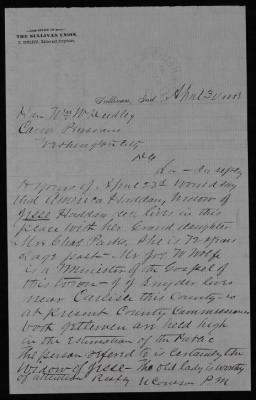 OFFICE OF
THE SULLIVAN UNION,
Sullivan, Ind. April 30
Hon Wm W Dudley
Com Pensions
Washington City
D.C.
Sir - In reply
to yours of April 23d would say
that America Haddon, widow of
Jesse Haddon, lives in this
place with her Grand daughter
Mrs Chas Parks, She is 72 years
of age past - Mr Jos W Wolfe
is a Minister of the Gospel of
this town - Snyder lives
near Carlisle this County - is
at present County Commissioner
both gentlemen are held high
in the Estimation of the Public
the person referred to is certainly the
Widow of Jesse - The old lady is worthy
of attention Resptly P M